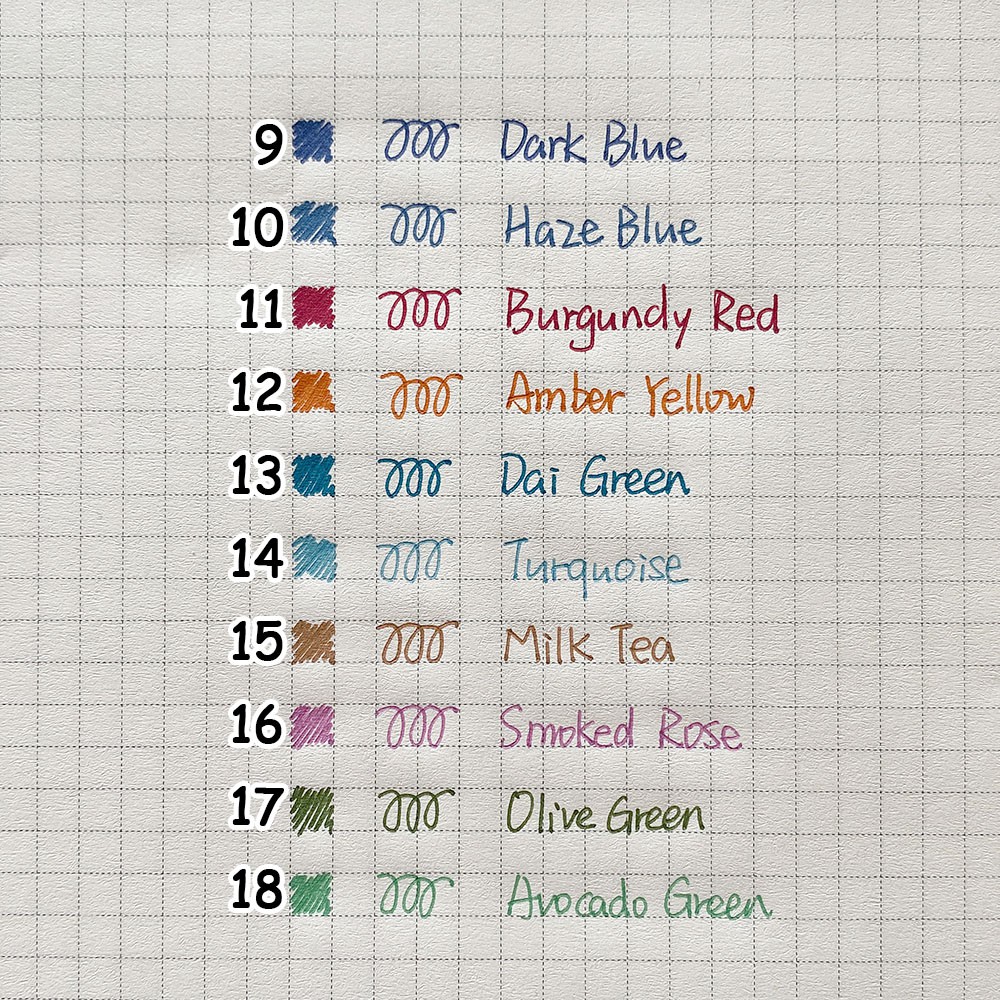 9 Dark Blue
10 Haze Blue
11 Burgundy Red
12 Amber Yellow
13 Dai Green
14 Turquoise
15 Milk Tea
16 Smoked Rose
17 Olive Green
18 Avocado Green